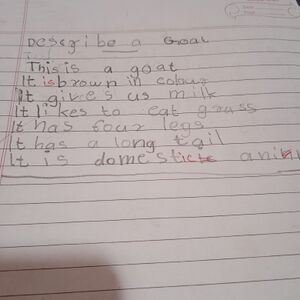 Describe a Goat
This is a goat
It is brown in colour
It gives us milk
It likes to eat grass
It has four legs
It has a long tail
It is domestic